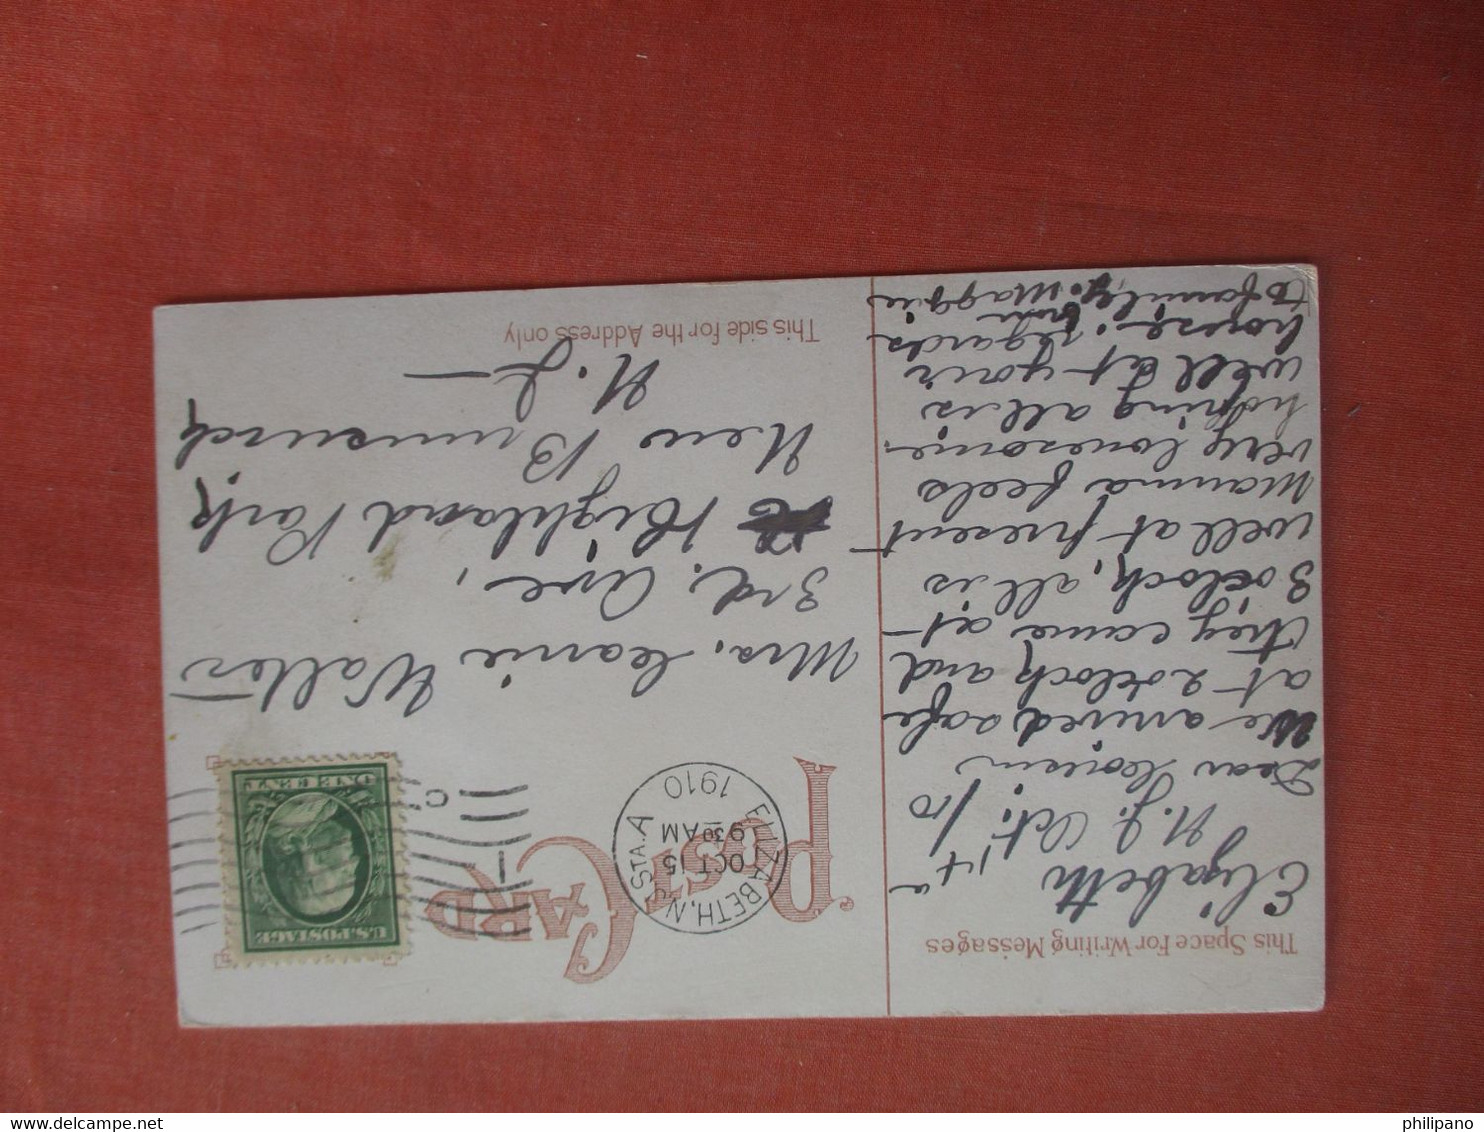 This Space For Writing Messages
Elizabeth
N.J. Oct. 14th /10
Dear Cousin
We arrived safe
at 2 oclock and
they came at
3 oclock, all is
well at present
Mamma feels
very lonesome.
hoping all is
well at your
house. regards from
to family. Maggie
POST CARD
ELIZABETH, N.J. STA. A
OCT 15
9 30 AM
1910
U.S. POSTAGE
ONE CENT
Mrs. Walter
3rd. Ave,
Highland Park,
New Brunswick
N.J.
This side for the Address only
philipano